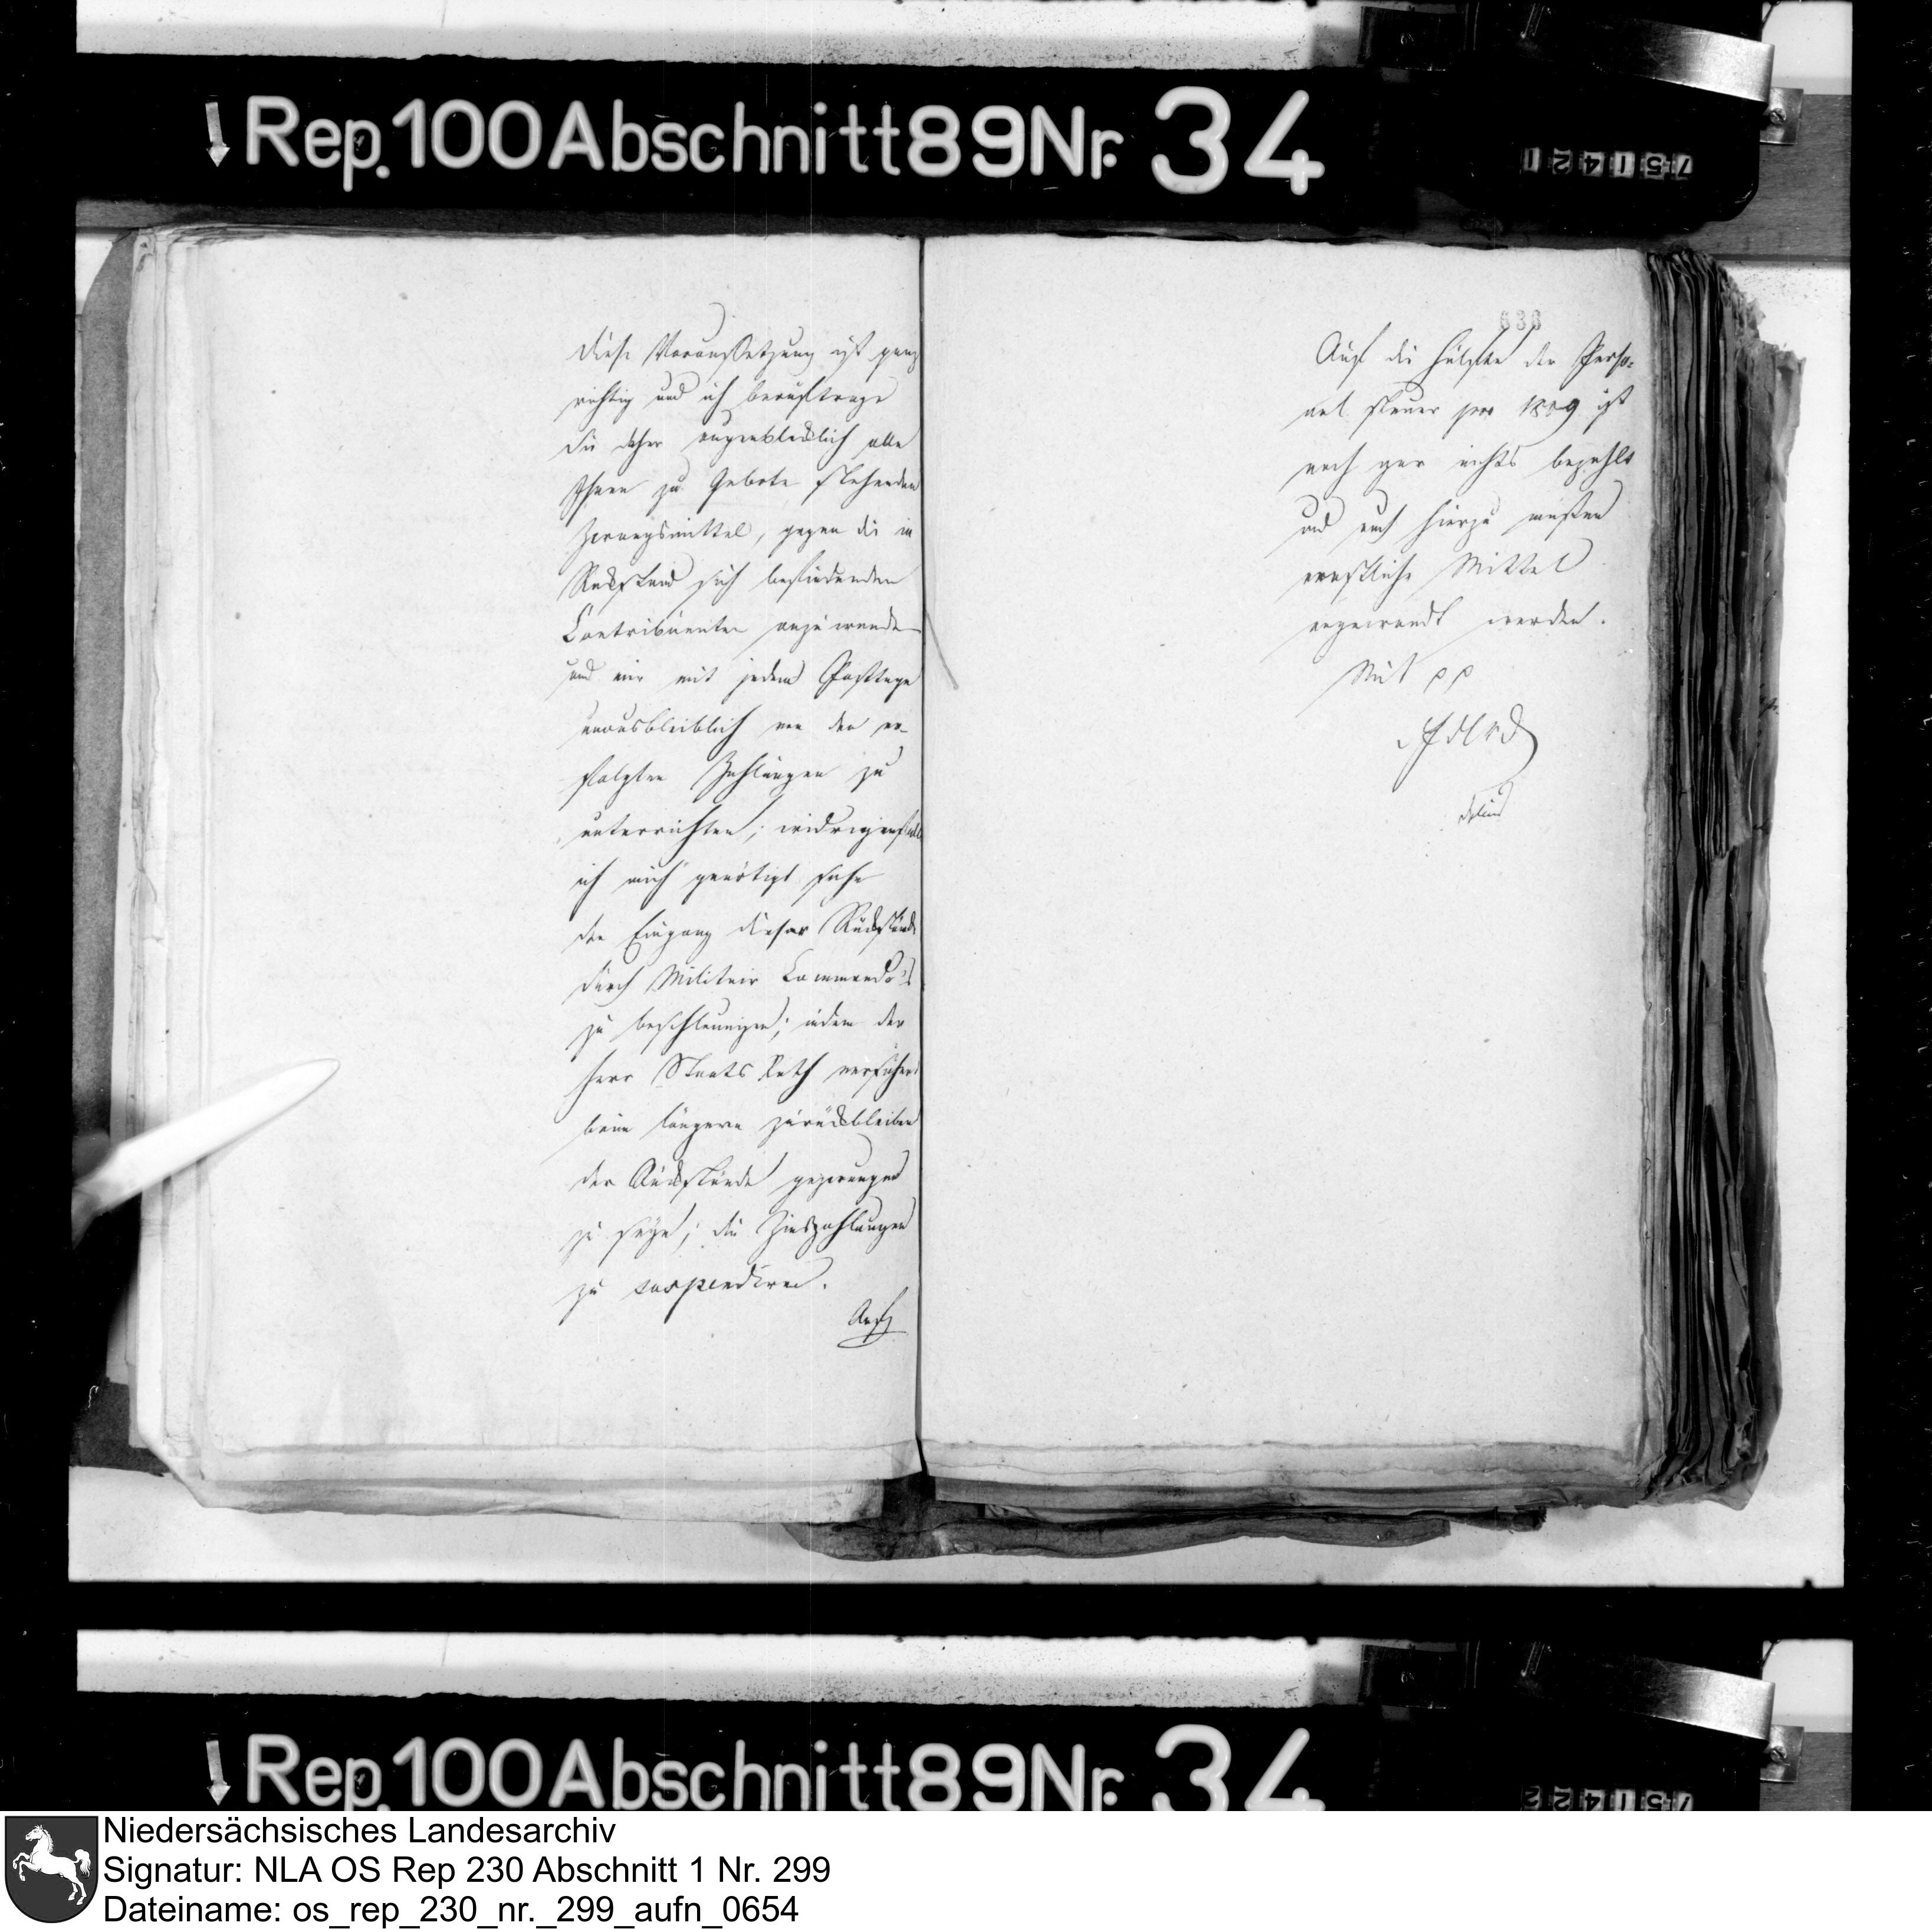 Rep. 100 Abschnitt 89 Nr. 34
751421
diese Voraussetzung ist ganz
richtig und ich beauftrage
Sie daher augenblicklich alle
Ihnen zu Gebote stehenden
Zwangsmittel, gegen die in
Rückstand sich befindenden
Contribuenten anzuwenden
und mir mit jedem Posttage
unausbleiblich von den er-
folgten Zahlungen zu
unterrichten; widrigenfalls
ich mich genötigt sehe
den Eingang dieser Rückstände
durch Militair Commando's
zu beschleunigen; indem der
Herr Staats Rath
beim längern zurückbleiben
der Rückstände gezwungen
zu seyn; die Zinszahlungen
zu suspendiren.
Auf
638
Auf die Hälfte der Perso-
nal steuer pro 1809 ist
noch gar nichts bezahlt
und auch hierzu müssen
ernstliche Mittel
angewandt werden.
Mit pp
Rep. 100 Abschnitt 89 Nr. 34
751422
Niedersächsisches Landesarchiv
Signatur: NLA OS Rep 230 Abschnitt 1 Nr. 299
Dateiname: os_rep_230_nr._299_aufn_0654